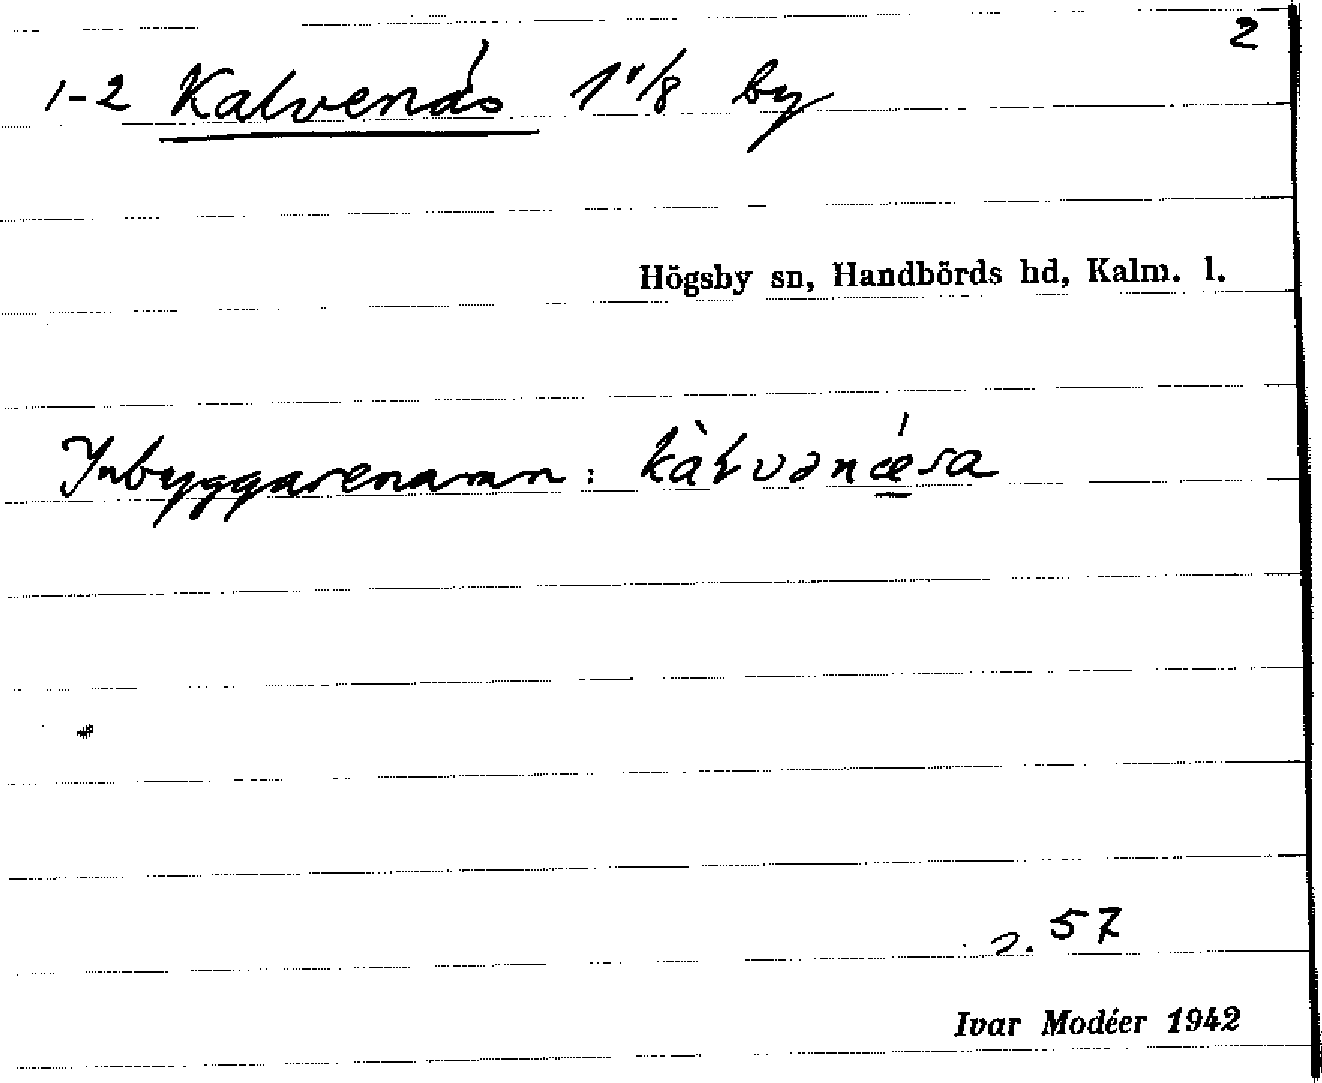 2
1-2 Kalvenäs 1 1/8 by
Högsby sn, Handbörds hd, Kalm. l.
Inbyggarenamn: kàɫvənǽsa
s. 57
Ivar Modéer 1942